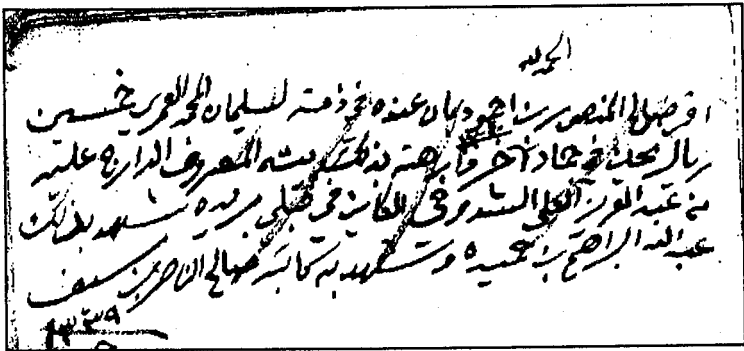 الحمد لله
اقر صالح المنصور بن احمود بان عنده في ذمته لسليمان المحمد العمري خمسين
ريال يحلن في جماد آخر وارهنه بذلك بيته المعروف الدارج عليه
من عبد العزيز العلي السدوخي الكاين في قبلي بريده شهد بذلك
عبد الله البراهيم بن حميده وشهد به كاتبه صالح الناصر بن سيف
١٣٣٩